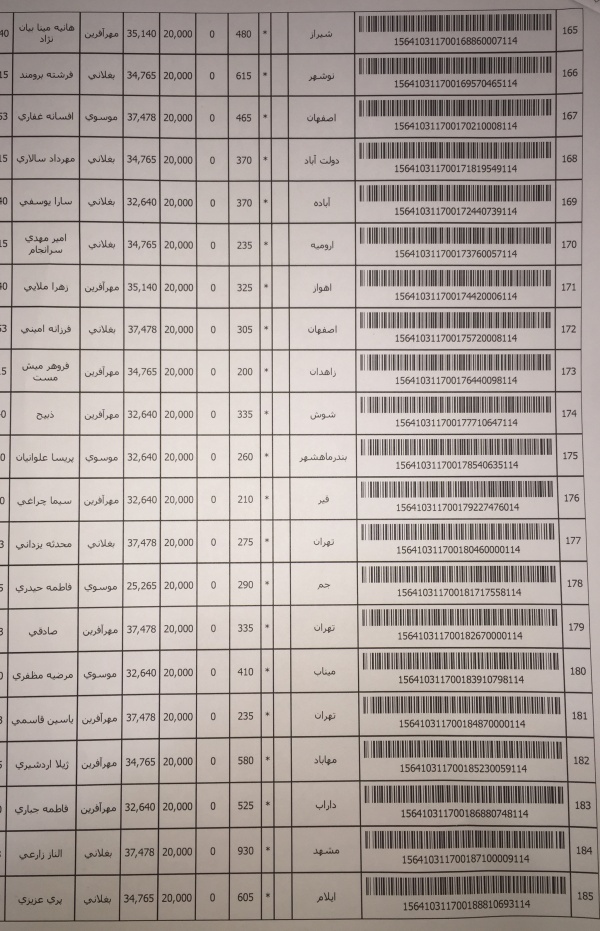 165 156410311700168860007114 شیراز * 480 0 20,000 35,140 مهرآفرین هانیه مینا بیان نژاد
166 156410311700169570465114 نوشهر * 615 0 20,000 34,765 بغلاني فرشته برومند
167 156410311700170210008114 اصفهان * 465 0 20,000 37,478 موسوي افسانه غفاري
168 156410311700171819549114 دولت آباد * 370 0 20,000 34,765 بغلاني مهرداد سالاري
169 156410311700172440739114 آباده * 370 0 20,000 32,640 بغلاني سارا یوسفي
170 156410311700173760057114 ارومیه * 235 0 20,000 34,765 بغلاني امیر مهدي سرانجام
171 156410311700174420006114 اهواز * 325 0 20,000 35,140 مهرآفرین زهرا ملایي
172 156410311700175720008114 اصفهان * 305 0 20,000 37,478 بغلاني فرزانه امیني
173 156410311700176440098114 زاهدان * 200 0 20,000 34,765 مهرآفرین فروهر میش مست
174 156410311700177710647114 شوش * 335 0 20,000 32,640 مهرآفرین ذبیح
175 156410311700178540635114 بندرماهشهر * 260 0 20,000 32,640 موسوي پریسا علوانیان
176 156410311700179227476014 قیر * 210 0 20,000 32,640 مهرآفرین سیما چراغي
177 156410311700180460000114 تهران * 275 0 20,000 37,478 بغلاني محدثه یزداني
178 156410311700181717558114 جم * 290 0 20,000 25,265 موسوي فاطمه حیدري
179 156410311700182670000114 تهران * 335 0 20,000 37,478 مهرآفرین صادقي
180 156410311700183910798114 میناب * 410 0 20,000 32,640 موسوي مرضیه مظفري
181 156410311700184870000114 تهران * 235 0 20,000 37,478 مهرآفرین یاسین قاسمي
182 156410311700185230059114 مهاباد * 580 0 20,000 34,765 مهرآفرین ژیلا اردشیري
183 156410311700186880748114 داراب * 525 0 20,000 32,640 مهرآفرین فاطمه جباري
184 156410311700187100009114 مشهد * 930 0 20,000 37,478 بغلاني الناز زارعي
185 156410311700188810693114 ایلام * 605 0 20,000 34,765 بغلاني پري عزیزي